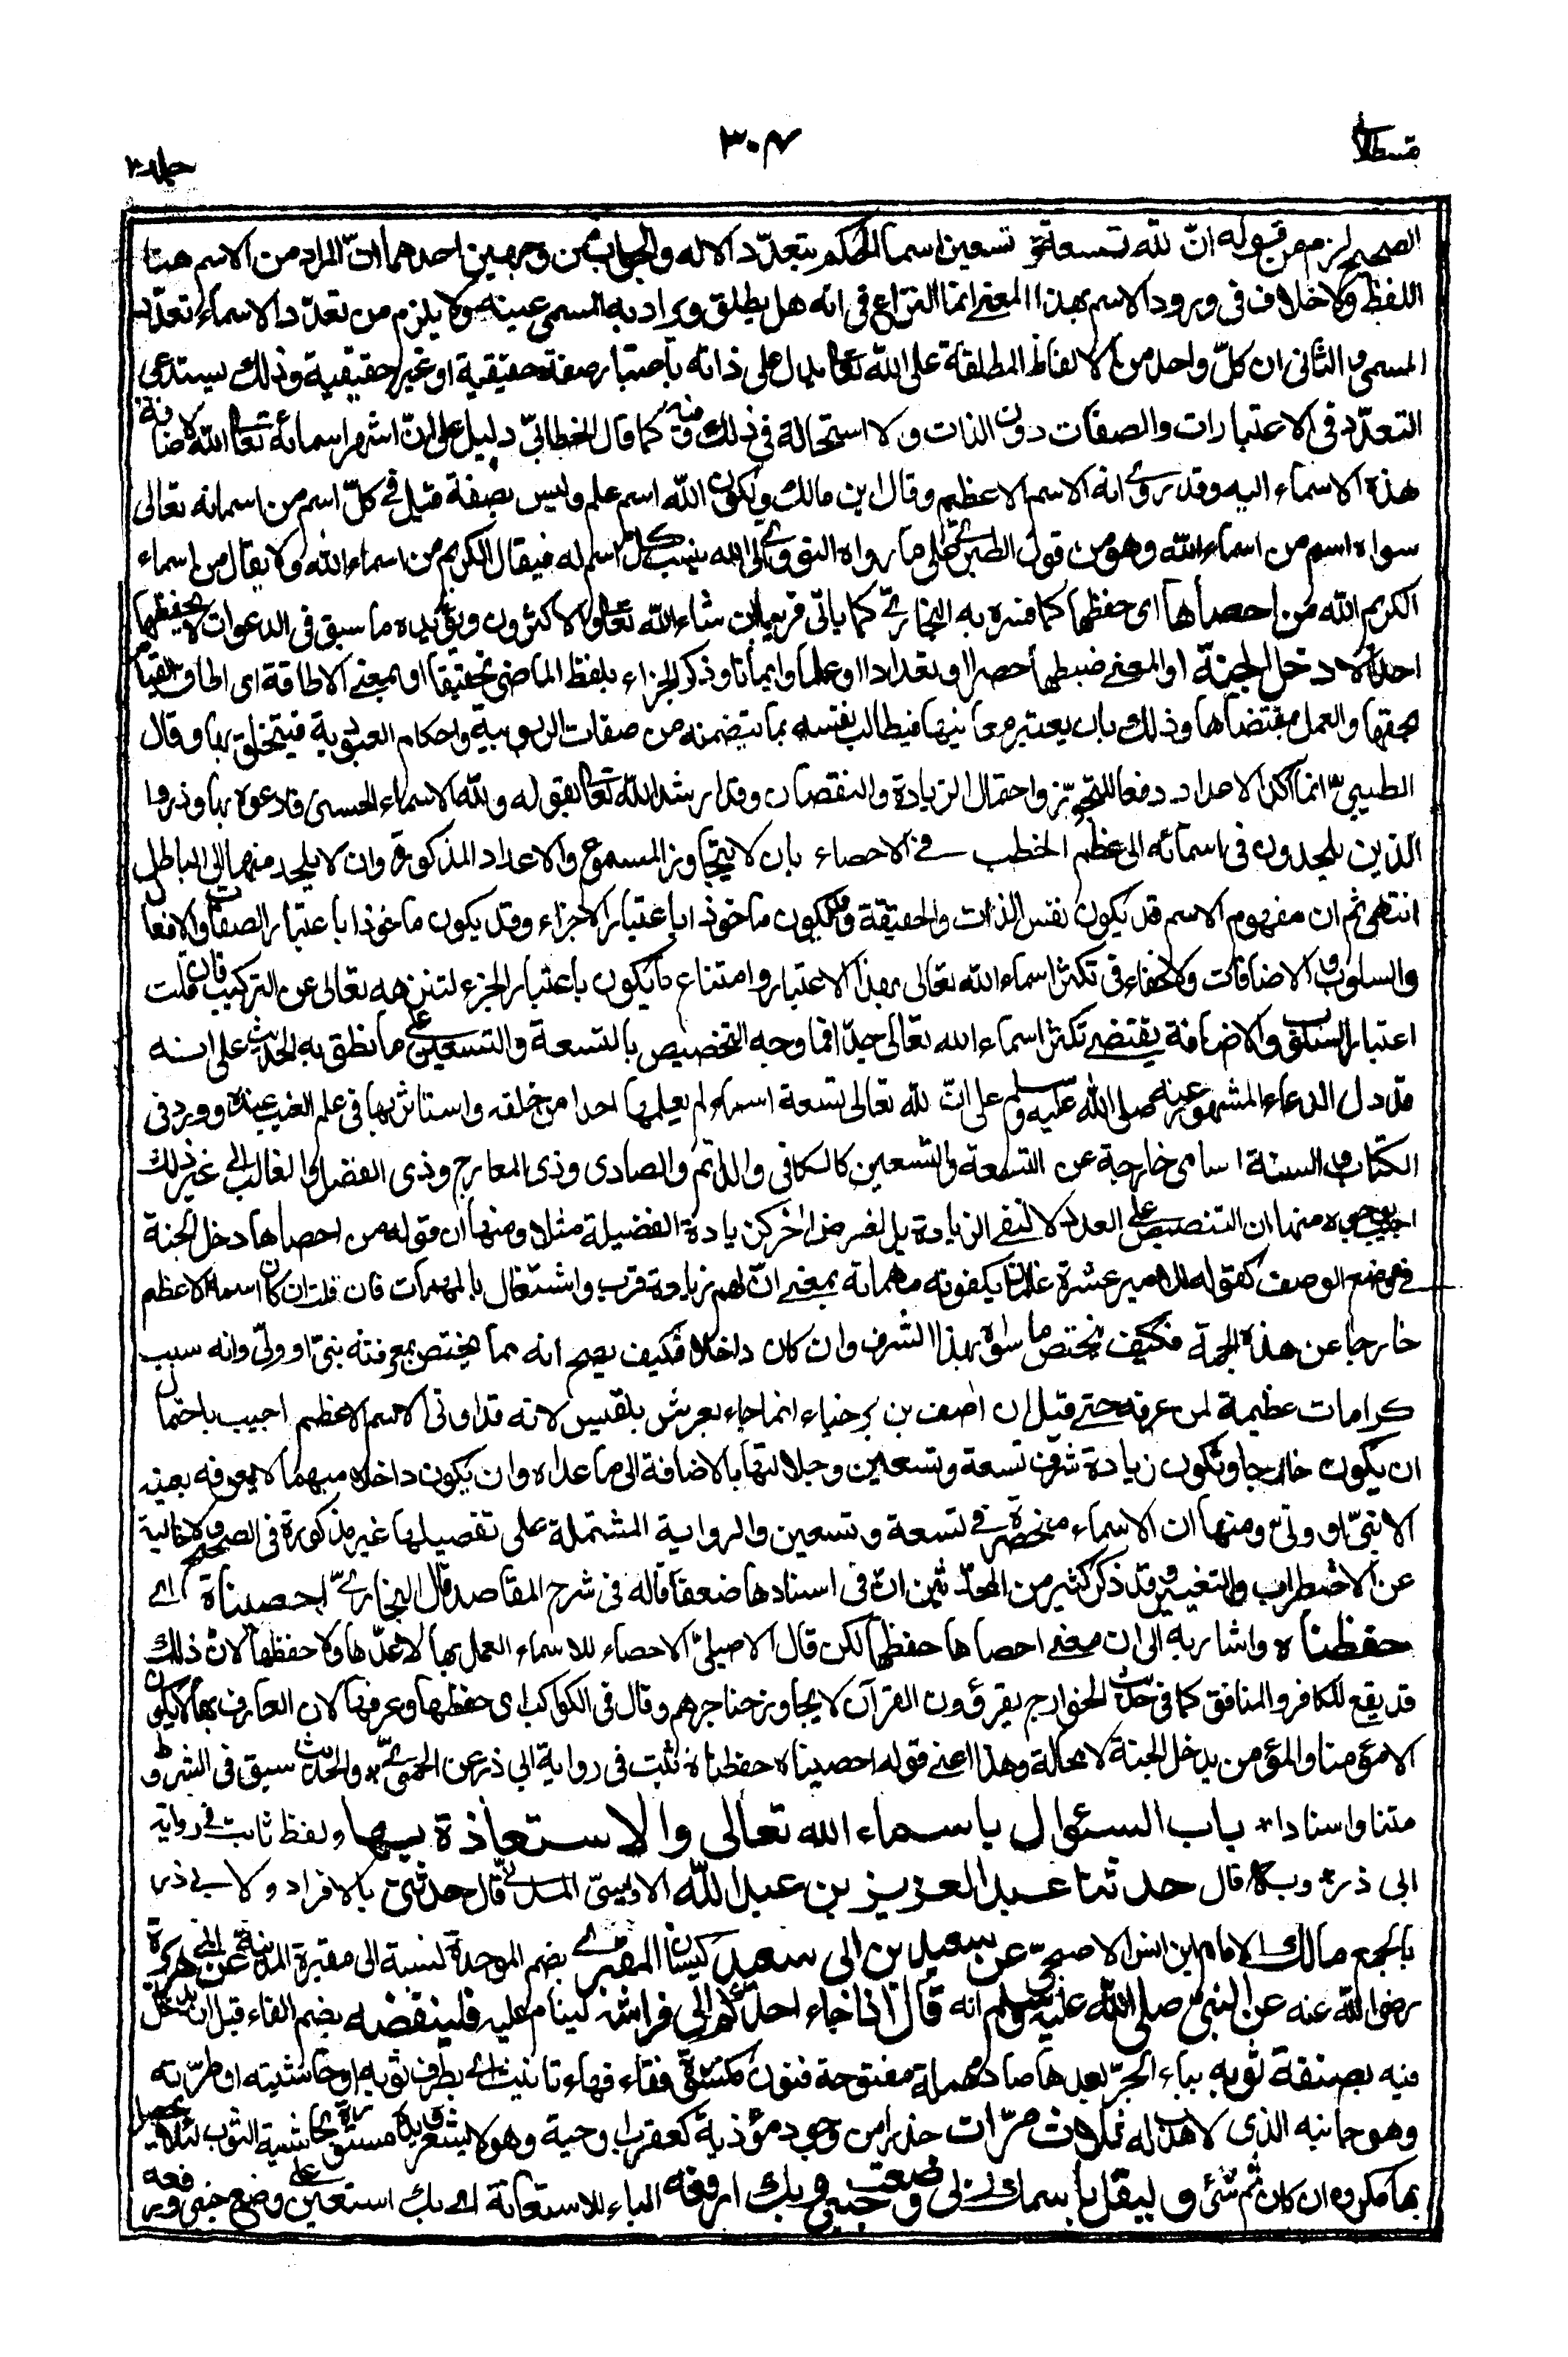 قسطلا
٣٠٧
جلد ٣
الصحيح لزم من قوله ان لله تسعة وتسعين اسما الحكم بتعدد الاله والجواب من وجهين احدهما ان المراد من الاسم هنا
اللفظ ولا خلاف فى ورود الاسم بهذا المعنى انما النزاع فى انه هل يطلق ويراد به المسمى عينه ولا يلزم من تعدد الاسماء تعدد
المسمى والثانى ان كل واحد من الالفاظ المطلقة على الله تعالى يدل على ذاته باعتبار صفة حقيقية او غير حقيقية وذلك يستدعى
التعدد فى الاعتبارات والصفات دون الذات ولا استحالة فى ذلك وفيه كما قال الخطابى دليل على ان اشهر اسمائه تعالى الله لاضافة
هذه الاسماء اليه وقد روى انه الاسم الاعظم وقال ابن مالك ولكون الله اسم علم وليس بصفة قيل فى كل اسم من اسمائه تعالى
سواه اسم من اسماء الله وهو من قول الطبرى على ما رواه النووى الى الله ينسب كل اسم له فيقال الكريم من اسماء الله ولا يقال من اسماء
الكريم الله من احصاها اى حفظها كما فسره به البخارى كما ياتى قريبا ان شاء الله تعالى والاكثرون ويؤيده ما سبق فى الدعوات لا يحفظها
احد الا دخل الجنة او المعنى ضبطها حصرا وتعدادا وعلما وايمانا وذكر الجزاء بلفظ الماضى تحقيقا او بمعنى الاطاقة اى اطاق القيام
بحقها والعمل بمقتضاها وذلك بان يعتبر معانيها فيطالب نفسه بما تتضمنه من صفات الربوبية واحكام العبودية فيتخلق بها وقال
الطيبى انما اكد الاعداد دفعا للتجوز واحتمال الزيادة والنقصان وقد ارشد الله تعالى بقوله ولله الاسماء الحسنى فادعوه بها وذروا
الذين يلحدون فى اسمائه الى عظم الخطب فى الاحصاء بان لا يتجاوز المسموع والاعداد المذكورة وان لا يلحد منها الى الباطل
انتهى ثم ان مفهوم الاسم قد يكون نفس الذات والحقيقة وقد يكون ماخوذا باعتبار الاجزاء وقد يكون ماخوذا باعتبار الصفات والافعال
والسلوب والاضافات ولا خفاء فى تكثر اسماء الله تعالى بهذا الاعتبار وامتناع ما يكون باعتبار الجزء لتنزهه تعالى عن التركيب فان قلت
اعتبار السلوب والاضافة يقتضى تكثر اسماء الله تعالى جدا فما وجه التخصيص بالتسعة والتسعين على ما نطق به الحديث على انه
قد دل الدعاء المشهور عنه صلى الله عليه وسلم على ان لله تعالى تسعة اسماء لم يعلمها احدا من خلقه واستاثر بها فى علم الغيب عنده وورد فى
الكتاب والسنة اسامى خارجة عن التسعة والتسعين كالكافى والدائم والصادق وذى المعارج وذى الفضل والغالب الى غير ذلك
اجيب بوجوه منها ان التنصيص على العدد لا لنفى الزيادة بل لغرض اخر كزيادة الفضيلة مثلا ومنها ان قوله من احصاها دخل الجنة
فى موضع الوصف كقوله للامير عشرة غلمان يكفونه مهماته بمعنى ان لهم زيادة قرب واشتغال بالمهمات فان قلت ان كان اسمه الاعظم
خارجا عن هذه الجملة فكيف يختص ما سواه بهذا الشرف وان كان داخلا فكيف يصح انه مما يختص بمعرفته نبى او ولى وانه سبب
كرامات عظيمة لمن عرفه حتى قيل ان اصف بن برخياء انما جاء بعرش بلقيس لانه قد اوتى الاسم الاعظم اجيب باحتمال
ان يكون خارجا وتكون زيادة شرف تسعة وتسعين وجلالتها بالاضافة الى ما عداه وان يكون داخلا مبهما لا يعرفه بعينه
الا نبى او ولى ومنها ان الاسماء منحصرة فى تسعة وتسعين والرواية المشتملة على تفصيلها غير مذكورة فى الصحيح ولا خالية
عن الاضطراب والتغيير وقد ذكر كثير من المحدثين ان فى اسنادها ضعفا قاله فى شرح المقاصد قال البخارى احصيناه اى
حفظناه واشار به الى ان معنى احصاها حفظها لكن قال الاصيلى الاحصاء للاسماء العمل بها لا عدها ولا حفظها لان ذلك
قد يقع للكافر والمنافق كما فى حديث الخوارج يقرؤون القرآن لا يجاوز حناجرهم وقال فى الكواكب اى حفظها وعرفها لان العارف بها لا يكون
الا مؤمنا والمؤمن يدخل الجنة لا محالة وهذا اعنى قوله احصيناه حفظناه ثبت فى رواية ابى ذر عن الحموى * والحديث سبق فى الشروط
متنا واسنادا * باب السئوال باسماء الله تعالى والاستعاذة بها ولفظ ثابت فى رواية
ابى ذر * وبه قال حدثنا عبد العزيز بن عبد الله الاويسى المدنى قال حدثنى بالافراد ولابى ذر
بالجمع مالك الامام ابن انس الاصبحى عن سعيد بن ابى سعيد كيسان المقبرى بضم الموحدة نسبة الى مقبرة المدينة عن ابى هريرة
رضى الله عنه عن النبى صلى الله عليه وسلم انه قال اذا جاء احدكم الى فراشه لينام عليه فلينفضه بضم الفاء قبل ان يدخل
فيه بصنفة ثوبه بباء الجر بعدها صاد مهملة مفتوحة فنون مكسورة ففاء فهاء تانيث اى بطرف ثوبه او حاشيته او طرته
وهو جانبه الذى لا هدب له ثلاث مرات حذرا من وجود مؤذية كعقرب او حية وهو لا يشعر ويده مستورة بحاشية الثوب لئلا يحصل
بها مكروه ان كان ثم شئ وليقل باسمك ربى وضعت جنبى وبك ارفعه الباء للاستعانة اى بك استعين على وضع جنبى ورفعه